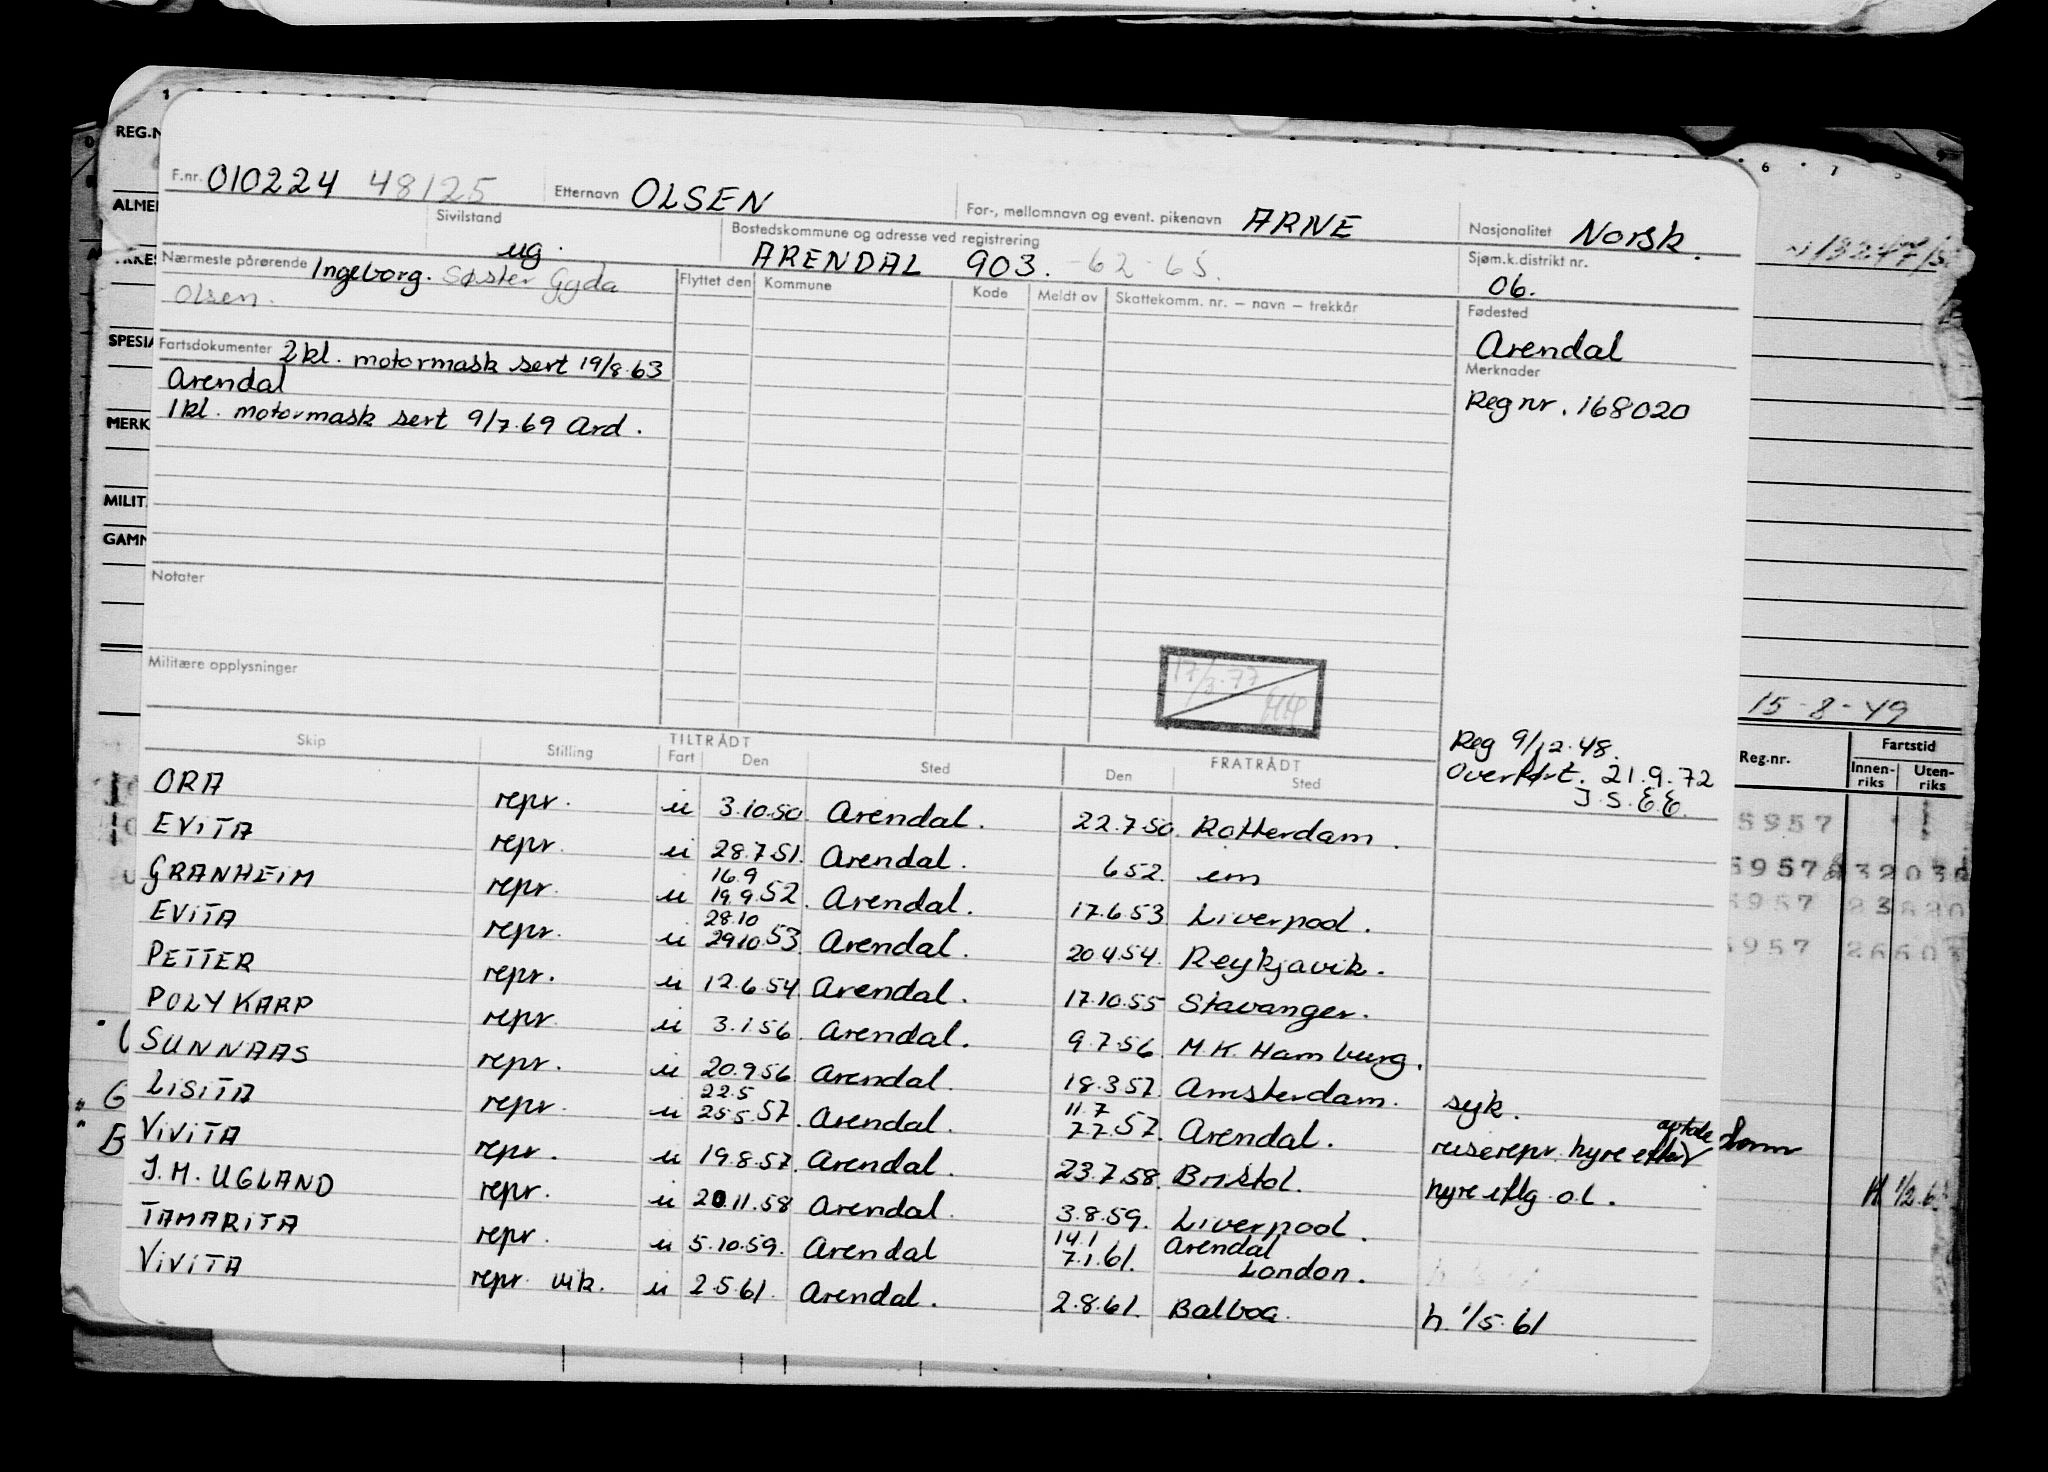 F.nr. 010224 48125 Etternavn OLSEN For-, mellomnavn og event. pikenavn ARNE Nasjonalitet Norsk.
Sivilstand ug. Bostedskommune og adresse ved registrering ARENDAL 903. -62-65. Sjøm.k.distrikt nr. 06.
Nærmeste pårørende Ingeborg. Søster Gyda
Olsen.
Flyttet den Kommune Kode Meldt av Skattekomm. nr. — navn — trekkår
Fødested
Arendal
Fartsdokumenter 2kl. motormask sert 19/8.63
Arendal
1kl. motormask sert 9/7.69 Ard.
Merknader
Reg nr. 168020
Notater
Militære opplysninger
17/3.77
Reg 9/12.48.
Overført. 21.9.72
J.S.E.E.
Skip Stilling TILTRÅDT Fart Den Sted FRATRÅDT Den Sted
ORA repr. u 3.10.50 Arendal. 22.7.50. Rotterdam.
EVITA repr. u 28.7.51. Arendal. 652. em
GRANHEIM repr. u 16.9 19.9.52. Arendal. 17.6.53 Liverpool.
EVITA repr. u 28.10 29.10.53. Arendal. 20.4.54. Reykjavik.
PETTER repr. u 12.6.54 Arendal. 17.10.55 Stavanger.
POLYKARP repr. u 3.1.56 Arendal. 9.7.56. M.K. Hamburg.
SUNNAAS repr. u 20.9.56 Arendal. 18.3.57. Amsterdam. syk.
LISITA repr. u 22.5 25.5.57. Arendal. 11.7 7.7.57. Arendal. reiserepr. hyre etter avtale
VIVITA repr. u 19.8.57. Arendal. 23.7.58. Bristol. hyre iflg o.l.
J.M. UGLAND repr. u 20.11.58 Arendal. 3.8.59. Liverpool.
TAMARITA repr. u 5.10.59. Arendal 14.1 7.1.61. Arendal London.
VIVITA repr. vik. u 2.5.61. Arendal. 2.8.61. Balboa. h. 1/5.61
REG.N
ALME
SPESIA
MERK
MILIT.
GAMN
15-8-49
Reg.nr. Fartstid
Innen-riks Uten-riks
5957